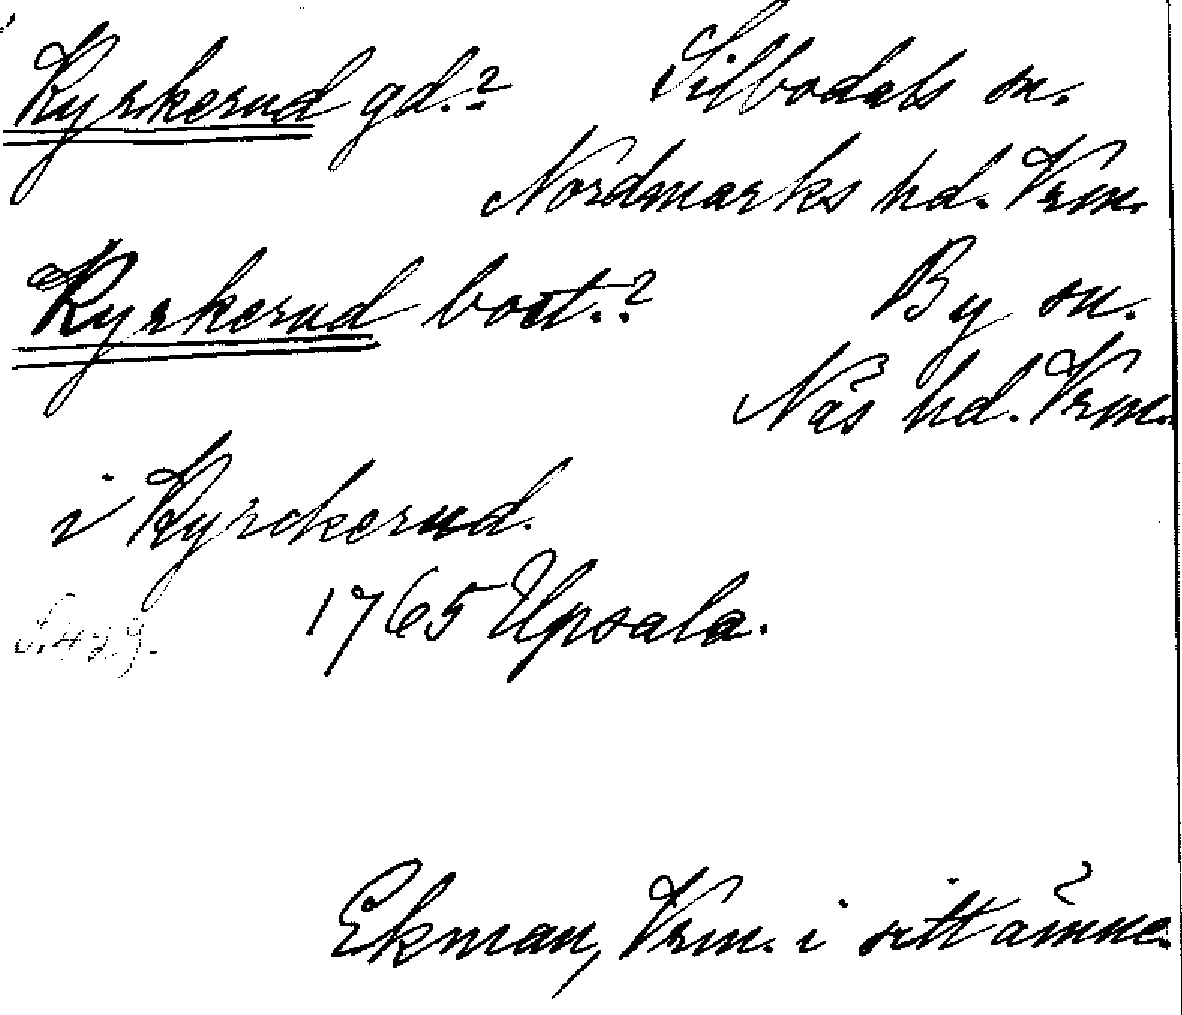 Kyrkerud gd.? Silbodals sn.
Nordmarks hd. Vrm.
Kyrkerud bost.? By sn.
Näs hd. Vrm.
i Kyrckerud.
S. 429. 1765 Upsala.
Ekman, Vrm. i sitt ämne.